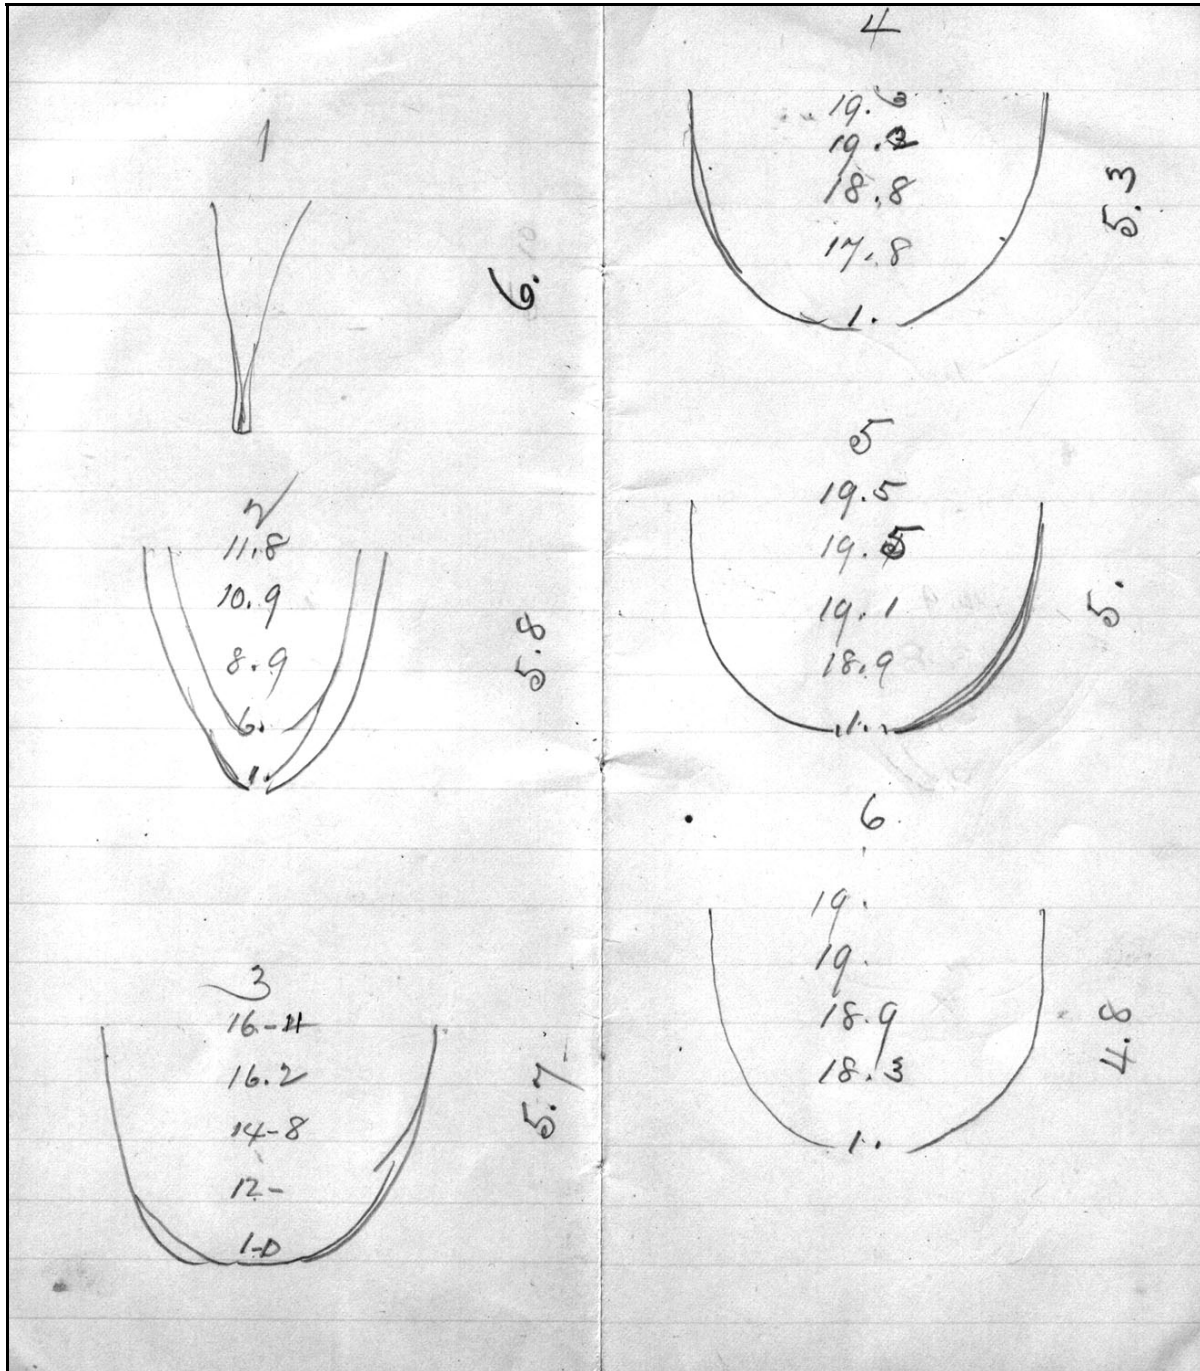 1
6.
2
11.8
10.9
8.9
6.
1.
5.8
3
16-11
16.2
14-8
12-
1-0
5.7
4
19.6
19.2
18.8
17.8
1.
5.3
5
19.5
19.5
19.1
18.9
1.
5.
6
19.
19.
18.9
18.3
1.
4.8